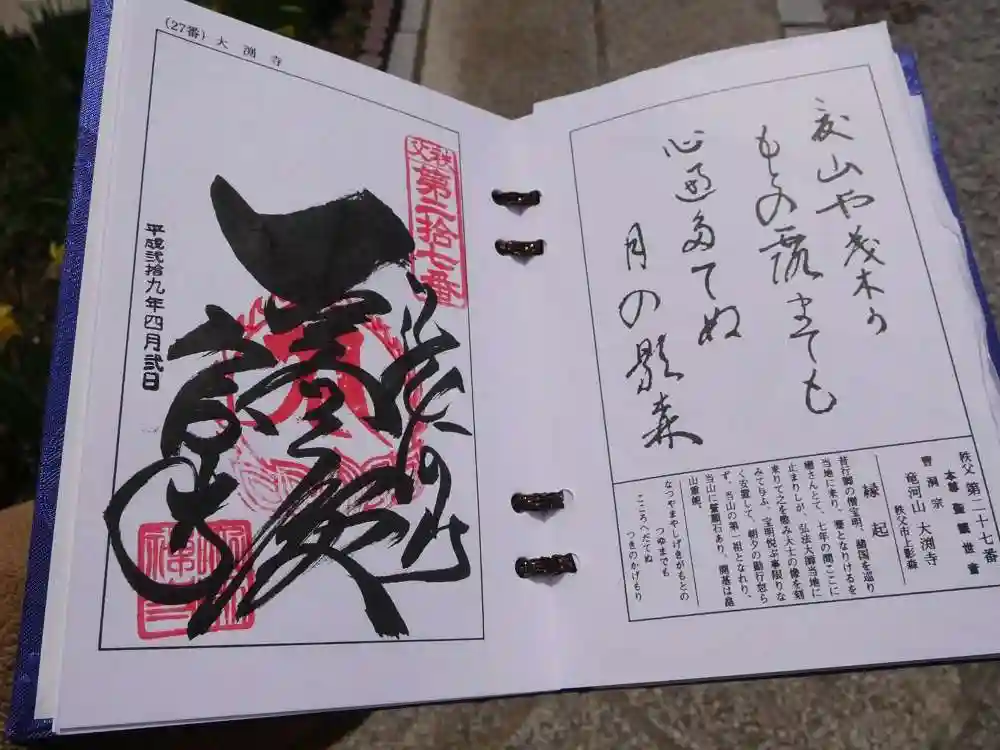 (27番) 大渕寺
秩父
第二拾七番
平成弐拾九年四月弐日
夏山や茂木か
もとの露までも
心遍多てぬ
月の影森
秩父 第二十七番
本尊 聖観世音
曹洞宗
竜河山 大渕寺
秩父市上影森
縁起
昔行脚の僧宝明、諸国を巡り
当地に来り、蹇となりけるを
癒さんとて、七年の間ここに
止まりしが、弘法大師当地に
来りて之を愍み大士の像を刻
みて与ふ、宝明悦ぶ事限りな
く安置して、朝夕の勤行怠ら
ず、当山の第一祖となれり、
当山に誓願石あり、開基は畠
山重能、
なつやまやしげきがもとの
つゆまでも
こころへだてぬ
つきのかげもり